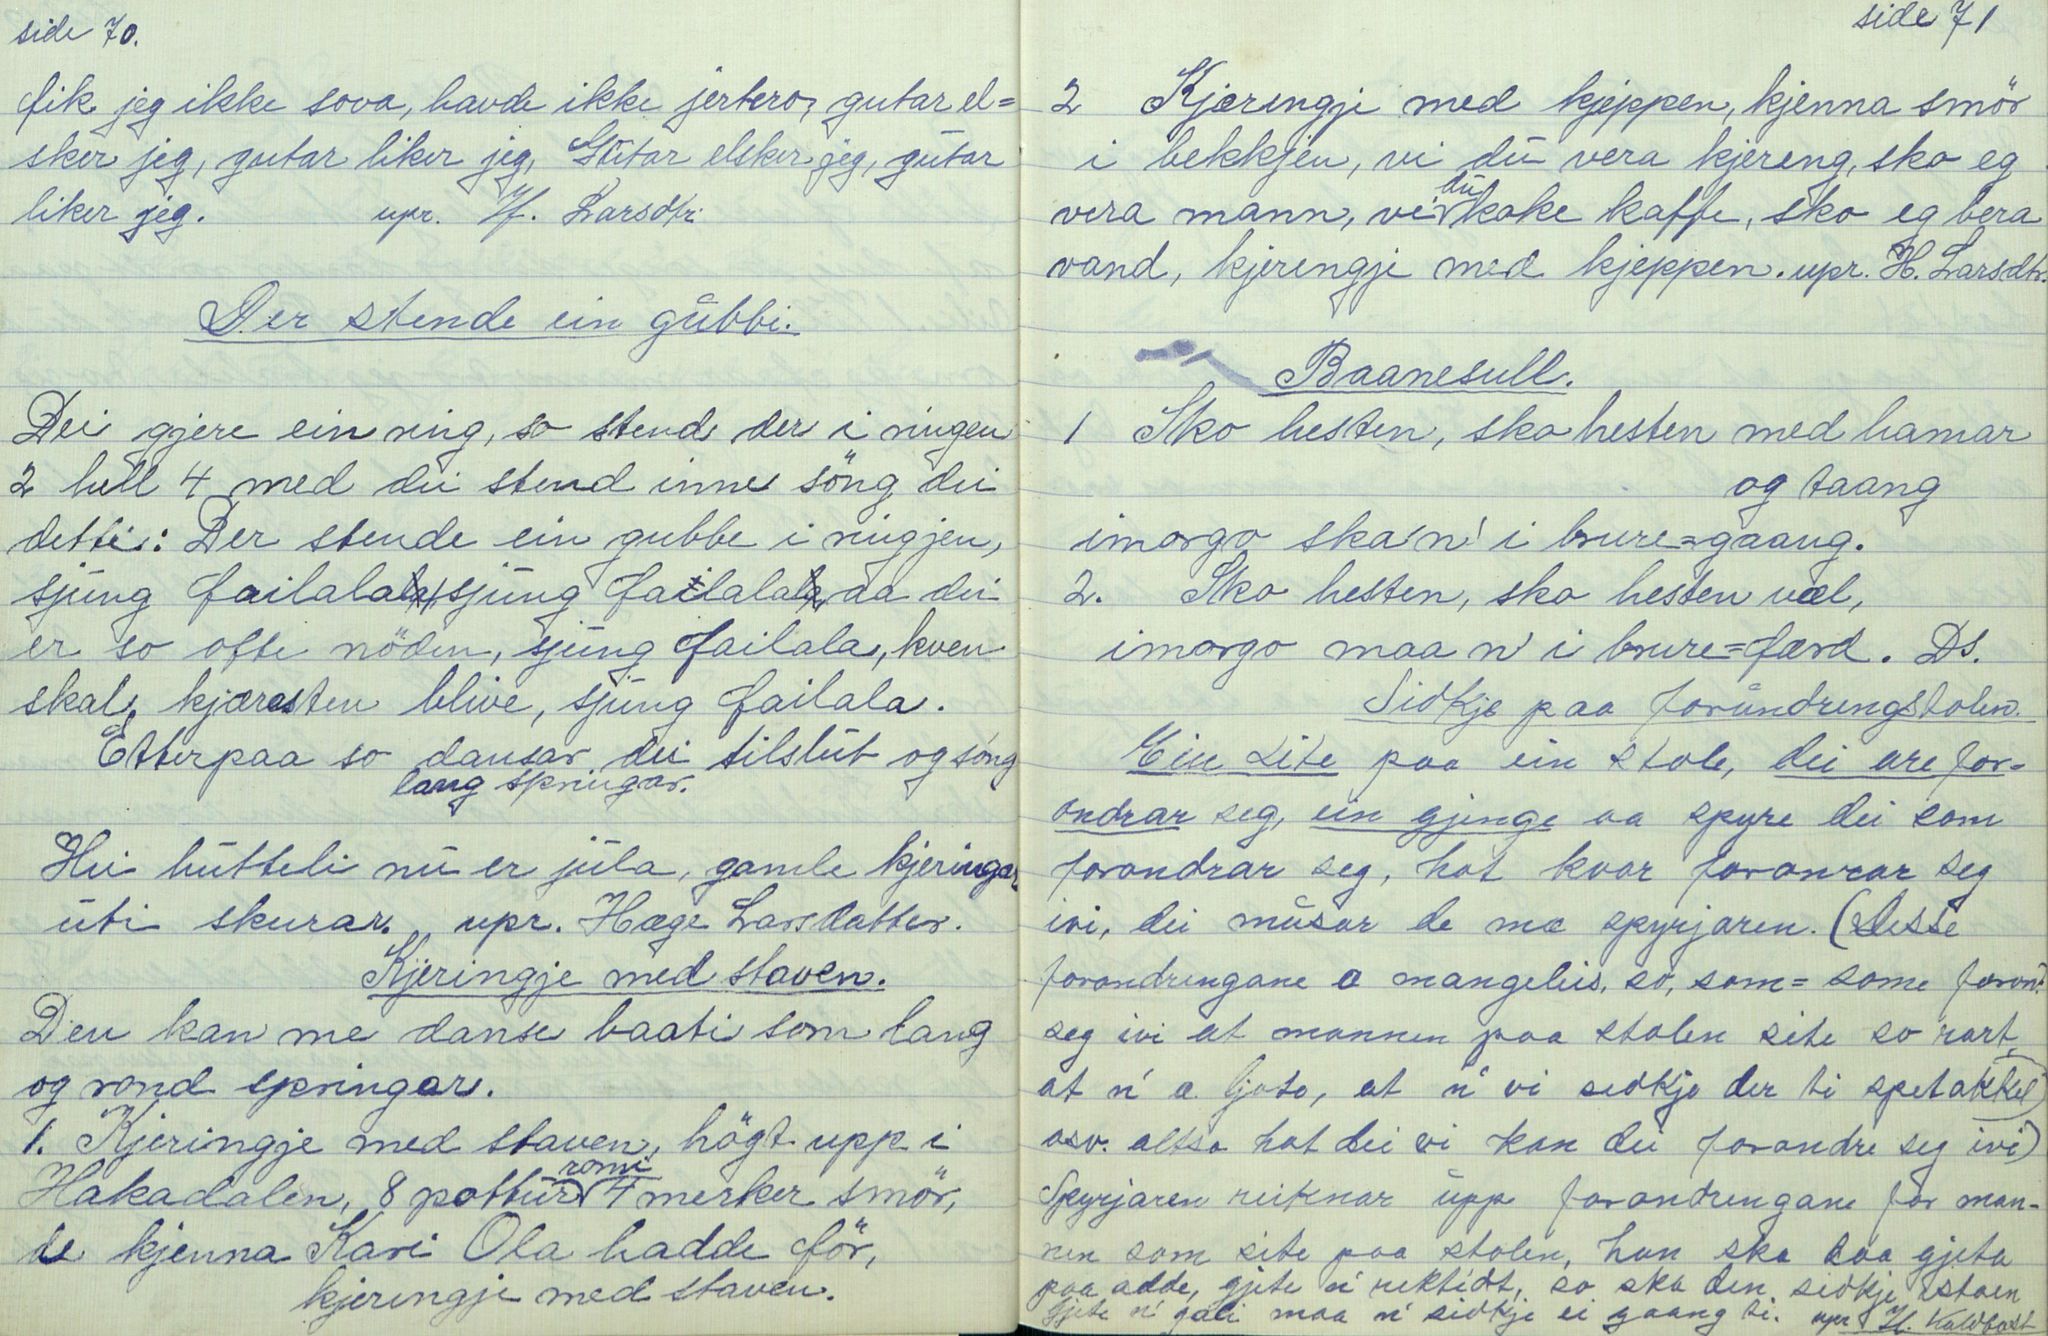 side 70.
fik jeg ikke sova, havde ikke jertero, gutar el=
sker jeg, gutar liker jeg, Gutar elsker jeg, gutar
liker jeg. upr. H. Larsdtr.
Der stende ein gubbi.
Dei gjere ein ring, so stend der i ringen
2 hell 4 med dei stend inne söng dei
detti: Der stende ein gubbe i ringjen,
sjung failala sjung failala aa dei
er so ofte nöden, sjung failala, kven
skal kjæresten blive, sjung failala.
Etterpaa so dansar dei tilslut og söng
lang springar.
Hei hutteli nu er jula, gamle kjeringar
uti skurar. upr. Hæge Larsdatter.
Kjeringje med staven.
Den kan me danse baati som lang
og rond springar.
1. Kjeringje med staven, högt upp i
Hakadalen, 8 pottur romi 4 merker smör,
de kjenna Kari Ola hadde för,
kjeringje med staven.
side 71
2 Kjæringji med kjeppen, kjenna smör
i bekkjen, vi du vera kjereng, sko eg
vera mann, vi du koke kaffe, sko eg bera
vand, kjerengji med kjeppen. upr. H. Larsdtr.
Baanesull.
1 Sko hesten, sko hesten med hamar
og taang
imorgo ska 'n' i brure=gaang.
2. Sko hesten, sko hesten væl,
imorgo maa n' i brure=færd. Ds.
Sidkje paa forundrengstolen.
Ein site paa ein stole, dei are for-
ondrar seg, ein gjenge aa spyre dei som
forondrar seg, hot kvar foronrar seg
ivi, dei musar de mæ spyrjaren. (Desse
forondrengane æ mangeleis, so, som= some forond.
seg ivi at mannen paa stolen site so rart,
at n' æ ljote, at n' vi sidkje der ti spetakkel
osv. altso hot dei vi kan dei forondre seg ivi)
Spyrjaren reiknar upp forondrengane for man-
nen som site paa stolen, han ska daa gjeta
paa adde, gjete n' rektidt, so ska den sidkje istaen
gjete n' gali maa n' sidkje ei gaang ti. upr H. Kaldbast